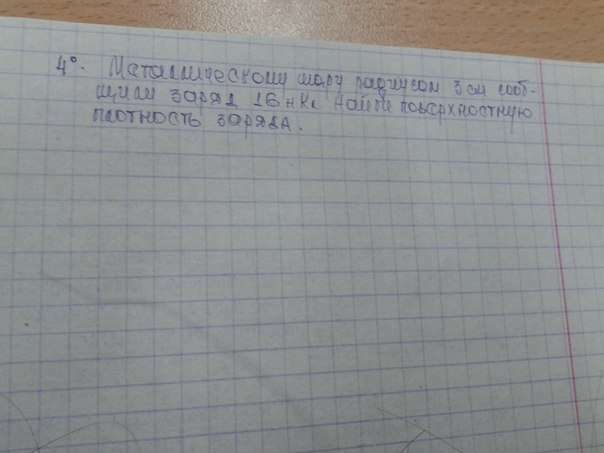 4°. Металлическому шару радиусом 3 см сооб-
щили заряд 16 нКл Найти поверхностную
плотность заряда.